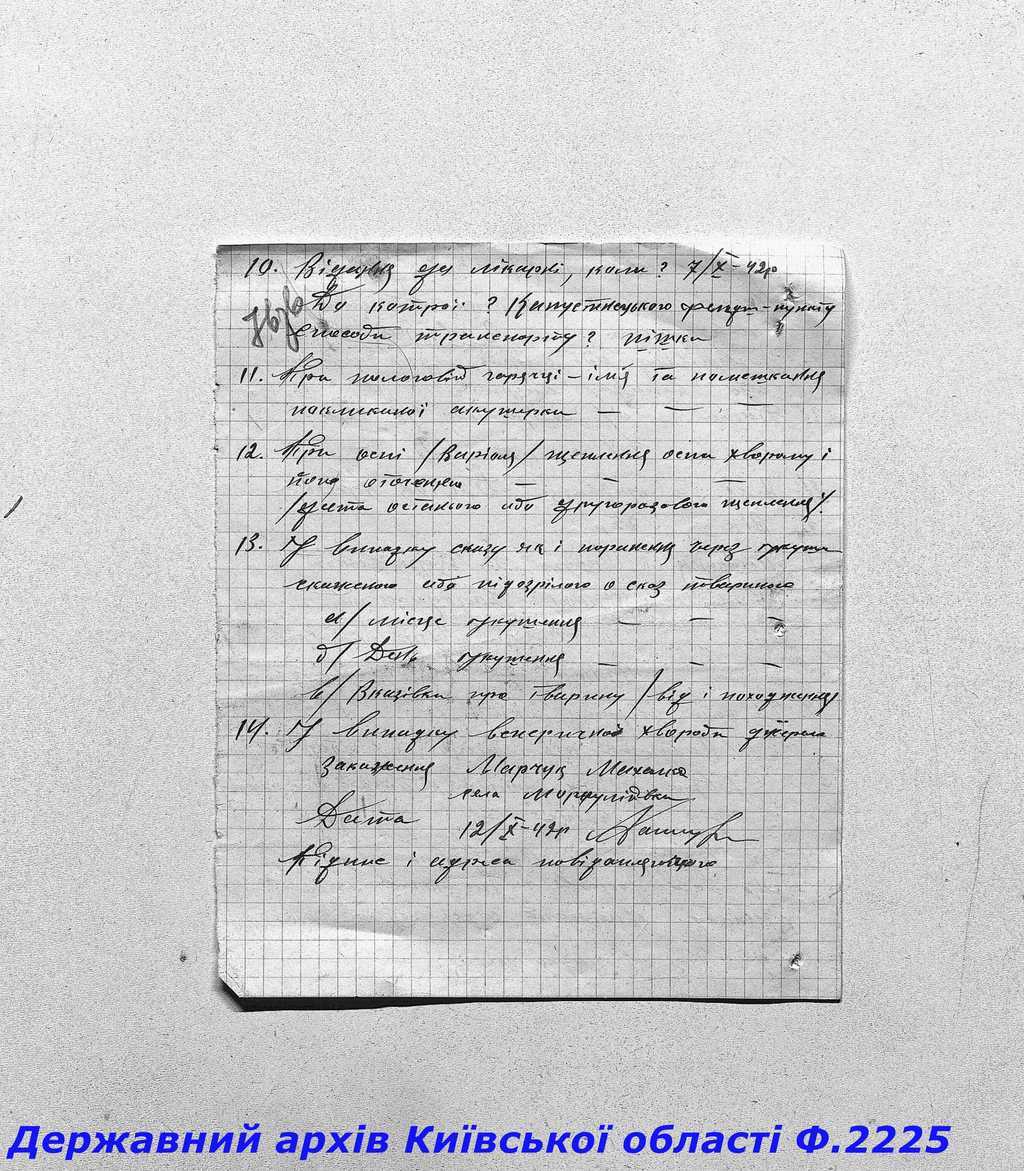 10. Відання до лікарні, коли? 7/X-42р
До котрої? Капустинецького фельдш-пункту
способи транспорту? пішки
11. При пологовій гарячці - імя та помешкання
покликаної акушерки — — —
12. При оспі /Варіоля/ щеплення оспи хворому і
його оточенню — — —
/дата останього або другоразового щеплення/.
13. У випадку сказу як і поранення через укуси
скаженою або підозрілого о сказ твариною
а/ місце укушення — — —
б/ День укушення — — —
в/ Вказівки про тварину /вид і походження
14. У випадку венеричної хвороби джерело
закаження Марчук Михайло
села
Дата 12/X-42р
Підпис і адреса
Державний архів Київської області Ф.2225